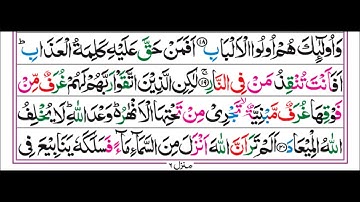 وَاُولٰٓئِكَ هُمْ اُولُوا الْاَلْبَابِ ۝۱۸ اَفَمَنْ حَقَّ عَلَيْهِ كَلِمَةُ الْعَذَابِ ؕ
اَفَاَنْتَ تُنْقِذُ مَنْ فِي النَّارِ ۝۱۹ لٰكِنِ الَّذِيْنَ اتَّقَوْا رَبَّهُمْ لَهُمْ غُرَفٌ مِّنْ
فَوْقِهَا غُرَفٌ مَّبْنِيَّةٌ ۙ تَجْرِيْ مِنْ تَحْتِهَا الْاَنْهٰرُ ؕ وَعْدَ اللّٰهِ ؕ لَا يُخْلِفُ
اللّٰهُ الْمِيْعَادَ ۝۲۰ اَلَمْ تَرَ اَنَّ اللّٰهَ اَنْزَلَ مِنَ السَّمَآءِ مَآءً فَسَلَكَهٗ يَنَابِيْعَ فِي
منزل ٦